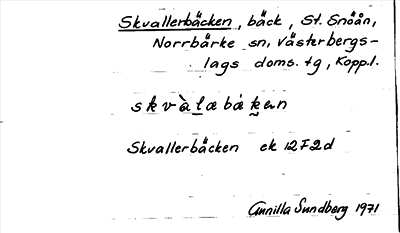 Skvallerbäcken, bäck, St. Snöån,
Norrbärke sn, Västerbergs-
lags doms. tg, Kopp.l.
skvàlæbákæn
Skvallerbäcken ek 12F2d
Gunilla Sundberg 1971